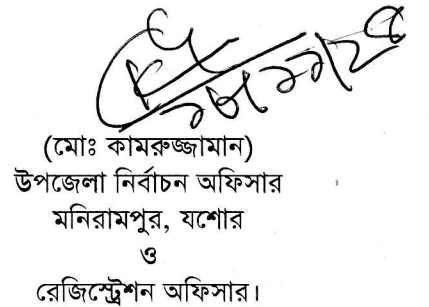 (মোঃ কামরুজ্জামান)
উপজেলা নির্বাচন অফিসার
মনিরামপুর, যশোর
ও
রেজিস্ট্রেশন অফিসার।